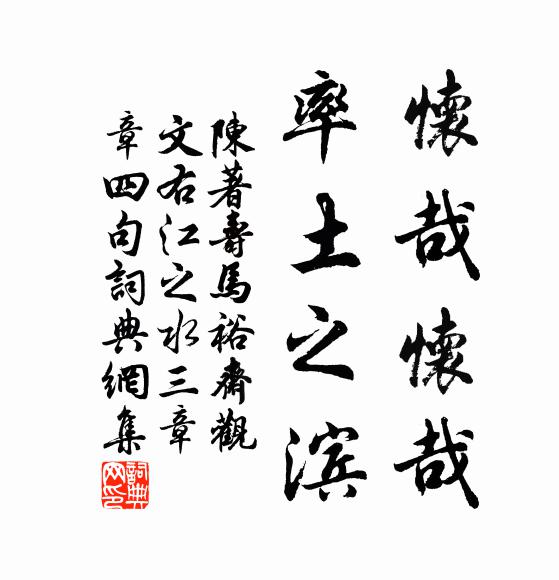 懷哉懷哉
率土之滨
陳著壽馬裕齋觀
文右江之水三章
章四句詞典網集
詞典网印